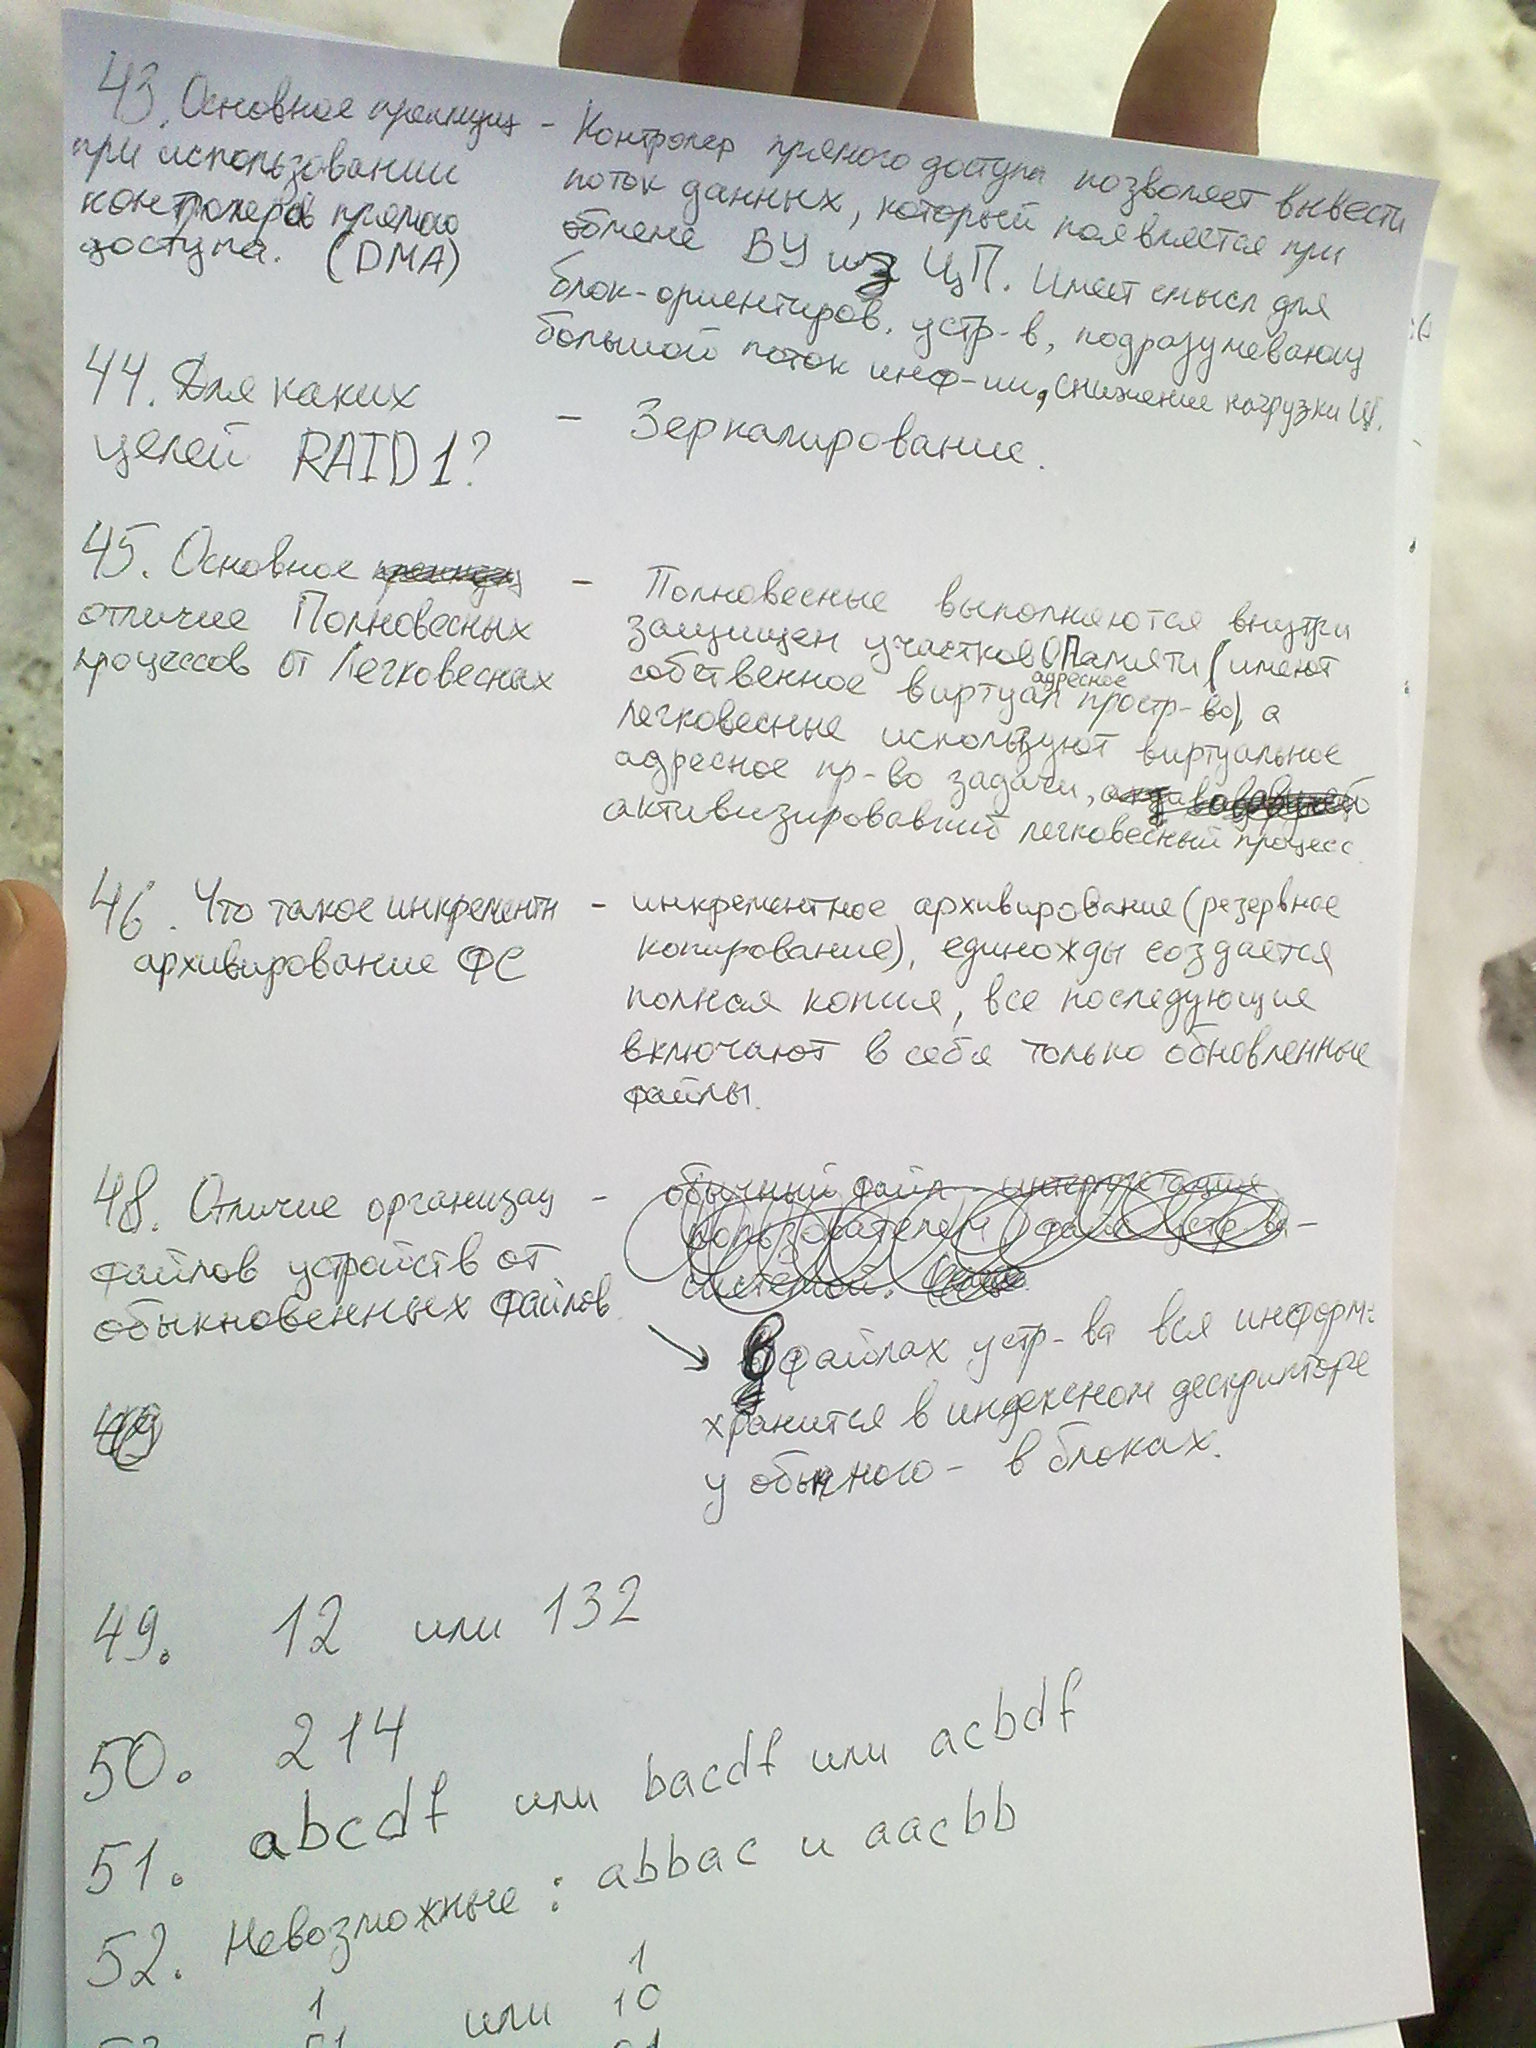 43. Основное преимущ - Контролер прямого доступа позволяет вывести
при использовании
контролеров прямого
доступа. (DMA)
поток данных, который появляется при
обмене ВУ из ЦП. Имеет смысл для
блок-ориентиров. устр-в, подразумевающ
большой поток инф-ии, снижение нагрузки ЦП.
44. Для каких
целей RAID1?
- Зеркалирование.
45. Основное
отличие Полновесных
процессов от Легковесных
- Полновесные выполняются внутри
защищен участков ОПамяти (имеют
собственное виртуал адресное простр-во), а
легковесные используют виртуальное
адресное пр-во задачи,
активизировавший легковесный процесс
46. Что такое инкрементн
архивирование ФС
- инкрементное архивирование (резервное
копирование), единожды создается
полная копия, все последующие
включают в себя только обновленные
файлы.
48. Отличие организац
файлов устройств от
обыкновенных файлов.
- обычный файл - интерпретация
пользователем файл устр-ва -
системой.
→ В файлах устр-ва вся информ.
хранится в индексном дескрипторе
у обычного - в блоках.
49. 12 или 132
50. 214
51. abcdf или bacdf или acbdf
52. Невозможные: abbac и aacbb
1 или 1
10